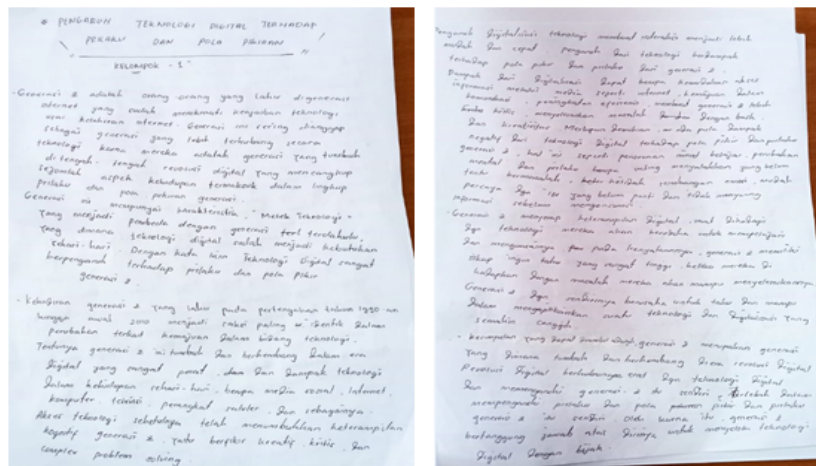 * PENGARUH TEKNOLOGI DIGITAL TERHADAP
PERILAKU DAN POLA PIKIRAN
KELOMPOK - 1
- Generasi Z adalah orang-orang yang lahir di generasi
internet yang sudah menikmati keajaiban teknologi
usai kelahiran internet. Generasi ini sering dianggap
sebagai generasi yang lebih terhubung secara
teknologi karna mereka adalah generasi yang tumbuh
di tengah-tengah revolusi digital yang mencangkup
sejumlah aspek kehidupan termasuk dalam lingkup
prilaku dan pola pikiran generasi.
Generasi ini mempunyai karakteristik, "Melek Teknologi"
yang menjadi pembeda dengan generasi terdahulu,
yang dimana teknologi digital sudah menjadi kebutuhan
sehari-hari. Dengan kata lain Teknologi Digital sangat
berpengaruh terhadap prilaku dan pola pikir
generasi Z.
- Kehadiran generasi Z yang lahir pada pertengahan tahun 1990-an
hingga awal 2010 menjadi saksi paling identik dalam
perubahan terkait kemajuan dalam bidang teknologi.
Tentunya generasi Z ini tumbuh dan berkembang dalam era
digital yang sangat pesat, dan dampak teknologi
dalam kehidupan sehari-hari, berupa media sosial, internet,
komputer, televisi, perangkat seluler, dan sebagainya.
Akses teknologi sebetulnya telah menumbuhkan keterampilan
kognitif generasi Z, yaitu berfikir kreatif, kritis, dan
complex problem solving.
Pengaruh digitalisasi teknologi membuat menjadi lebih
mudah dan cepat. pengaruh dari teknologi berdampak
terhadap pola pikir dan prilaku dari generasi Z.
Dampak dari digitalisasi dapat berupa kemudahan akses
informasi melalui media seperti internet, kemajuan dalam
komunikasi, peningkatan efisiensi, membuat generasi Z lebih
kritis, menyelesaikan masalah dengan baik,
dan kreatifitas. Meskipun demikian, ada pula dampak
negatif dari teknologi digital terhadap pola pikir dan prilaku
generasi Z, hal ini seperti penurunan minat belajar, perubahan
mental dan prilaku berupa saling menyalahkan yang belum
tentu bermasalah, mudah
percaya dgn isu yang belum pasti dan tidak menyaring
informasi sebelum
- Generasi Z menyerap keterampilan digital, saat dihadapi
dgn teknologi mereka akan berusaha untuk mempelajari
dan menguasainya pada kenyataannya, generasi Z memiliki
sikap ingin tahu yang sangat tinggi, ketika mereka di
hadapkan dengan masalah mereka akan mampu menyelesaikannya
Generasi Z dgn sendirinya berusaha untuk tahu dan mampu
dalam mengaplikasikan suatu teknologi dan digitalisasi yang
semakin canggih
- Kesimpulan yang dapat diambil adalah, generasi Z merupakan generasi
yang dimana tumbuh dan berkembang di era revolusi digital
Revolusi digital berhubungan erat dgn teknologi digital
dan memengaruhi generasi Z itu sendiri, terlebih dalam
mempengaruhi prilaku dan pola pikir dan prilaku
generasi Z itu sendiri. Oleh karna itu, generasi Z
bertanggung jawab atas dirinya untuk menyerap teknologi
digital dengan bijak.